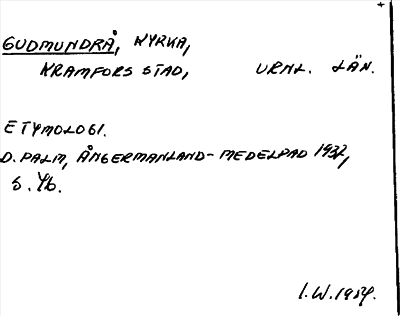 GUDMUNDRÅ, KYRKA,
KRAMFORS STAD, VRNL. LÄN.
ETYMOLOGI.
D. PALM, ÅNGERMANLAND-MEDELPAD 1937,
S. 46.
I.W. 1954.